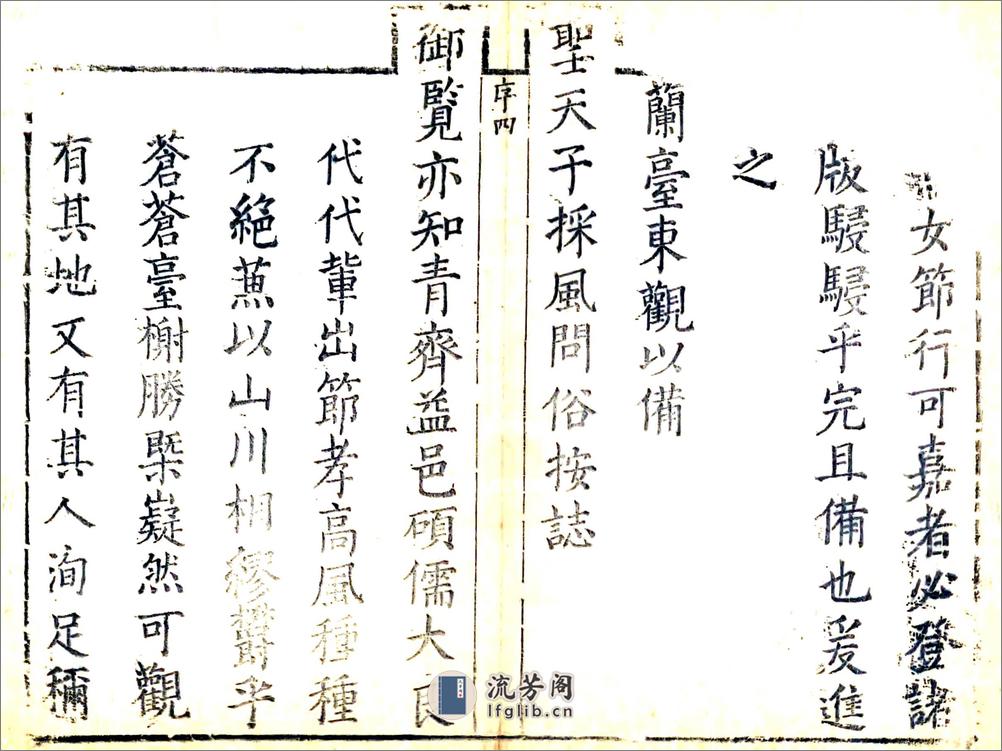 女節行可嘉者必登諸
版駸駸乎完且備也爰進
之
蘭臺東觀以備
聖天子採風問俗按誌
序四
御覽亦知青齊益邑碩儒大良
代代輩出節孝高風種種
不絕蒸以山川相繆鬱乎
蒼蒼臺榭勝槩嶷然可觀
有其地又有其人洵足稱
流芳阁
lfglib.cn